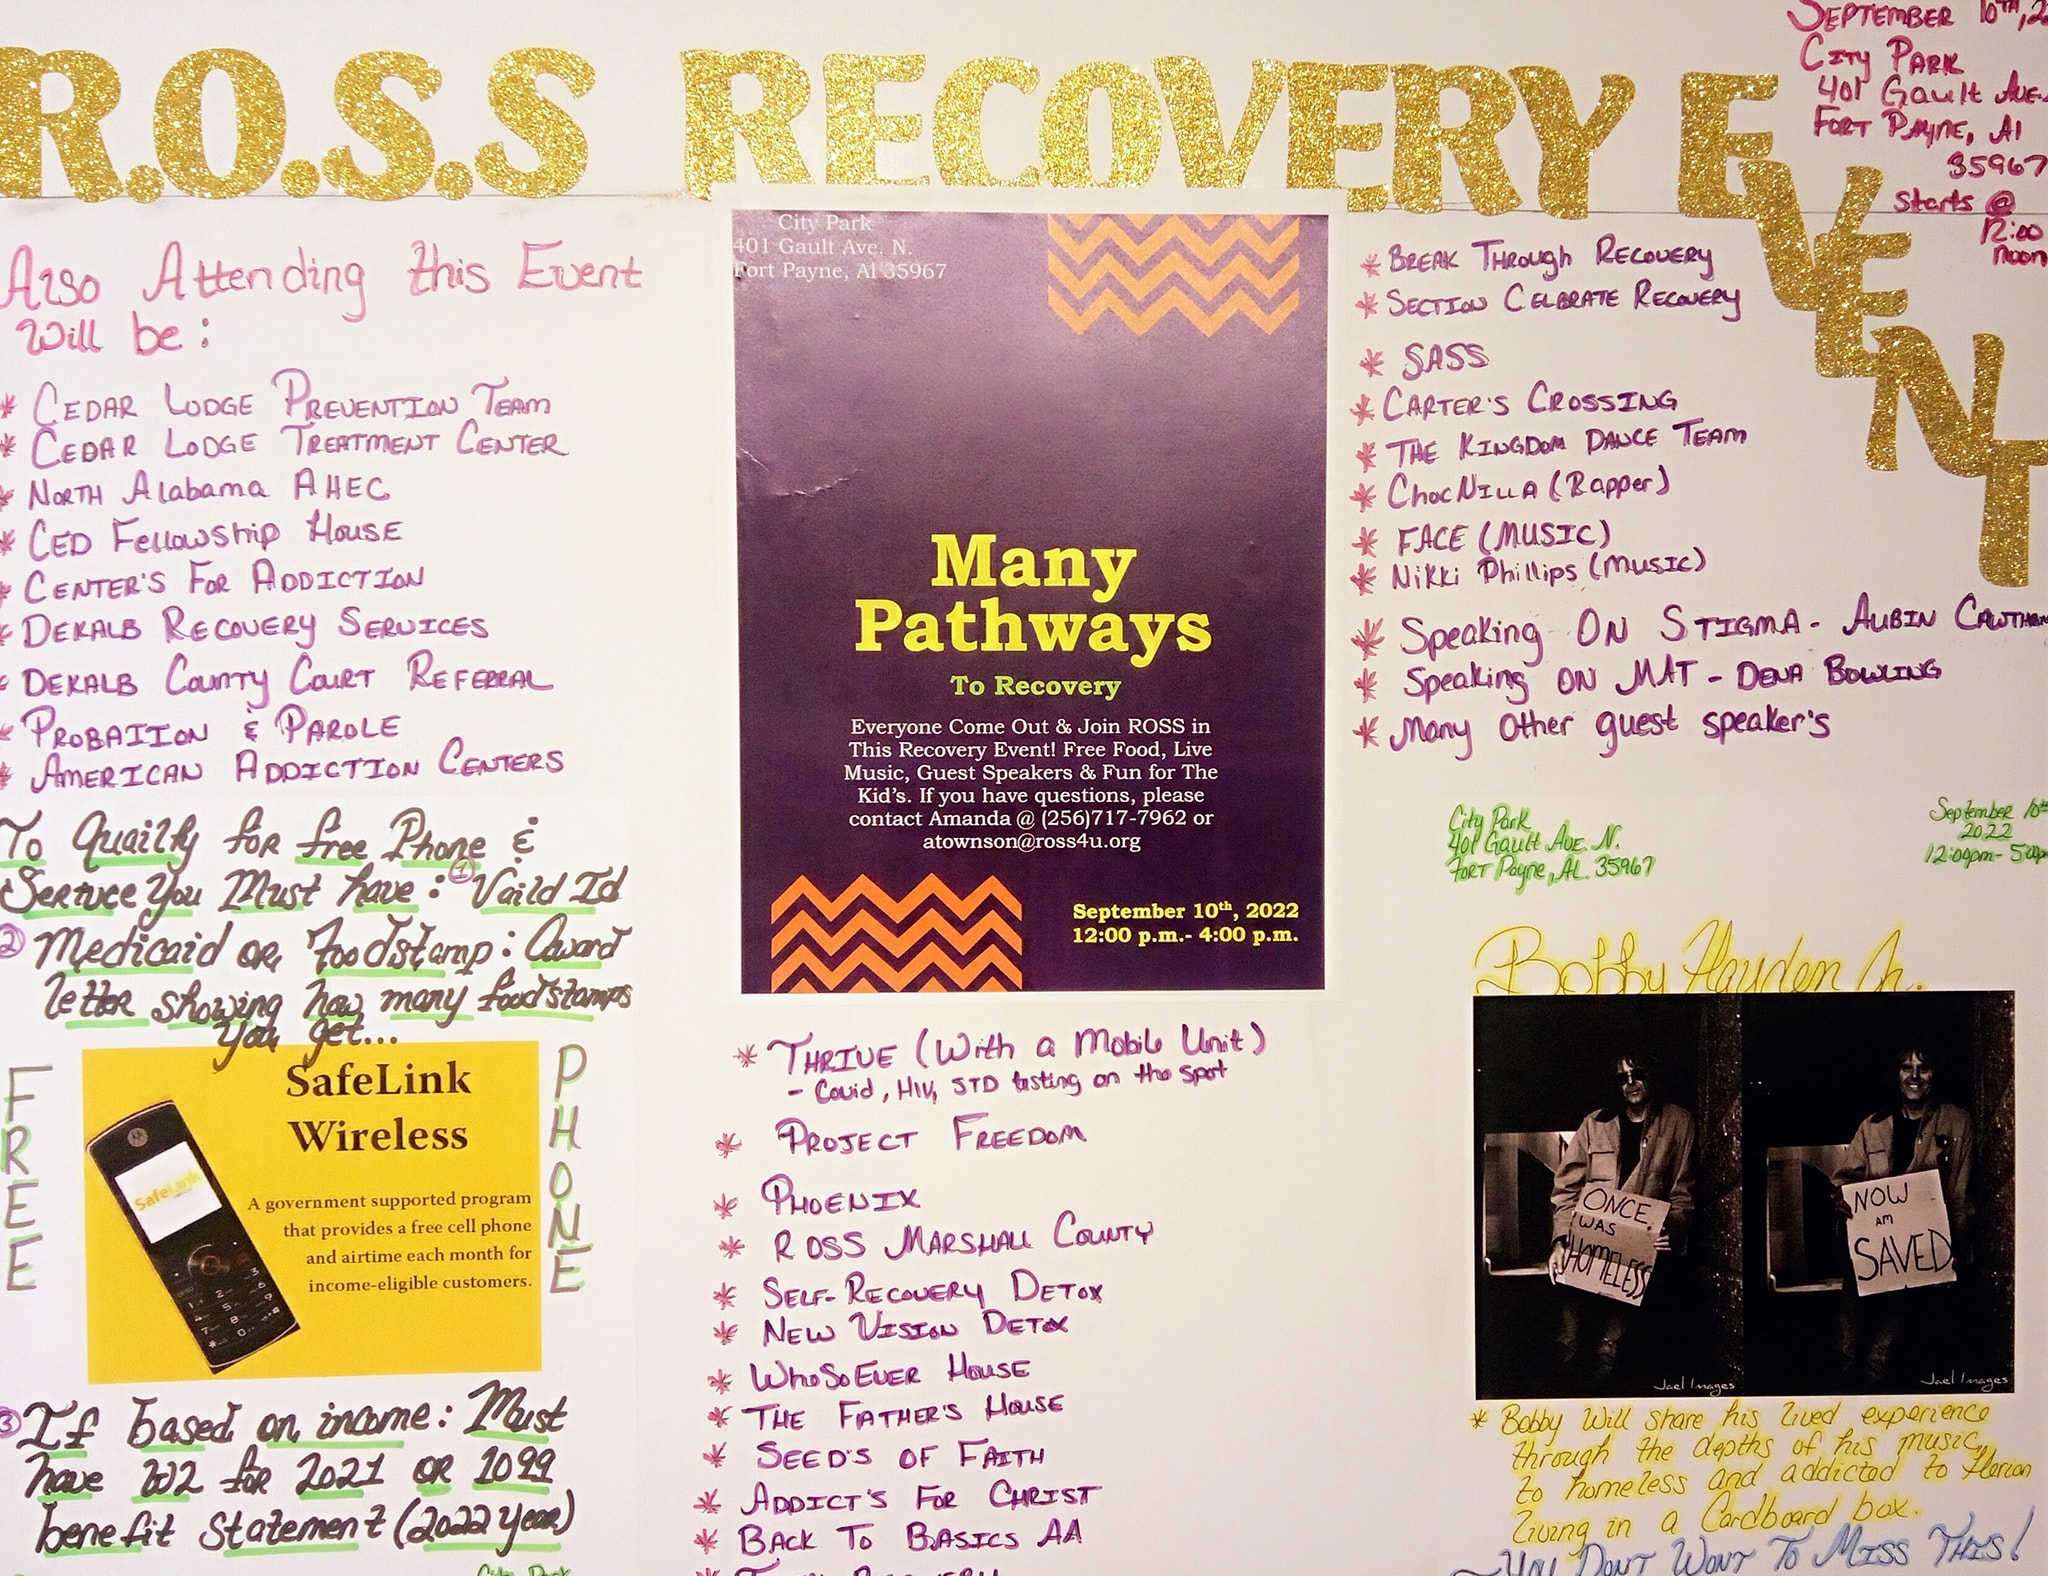 R.O.S.S RECOVERY EVENT
SEPTEMBER 10TH, 2
CITY PARK
401 Gault AVE.
FORT PAYNE, Al
35967
Starts @
12:00
noon
Also Attending this Event
Will be:
* CEDAR LODGE PREVENTION TEAM
* CEDAR LODGE TREATMENT CENTER
* NORTH Alabama AHEC
* CED Fellowship HOUSE
* CENTER'S FOR ADDICTION
* DEKALB RECOVERY SERVICES
* DEKALB COUNTY COURT REFERRAL
* PROBATION & PAROLE
* AMERICAN ADDICTION CENTERS
To Quailfy for free Phone &
Service You Must have: ① Vaild Id
② Medicaid OR Foodstamp: Award
letter showing how many foodstamps
you get...
FREE
PHONE
SafeLink
Wireless
SafeLink
A government supported program
that provides a free cell phone
and airtime each month for
income-eligible customers.
③ If based on income: Must
have W2 for 2021 OR 1099
benefit Statement (2022 year)
City Park
City Park
401 Gault Ave. N.
Fort Payne, Al 35967
Many
Pathways
To Recovery
Everyone Come Out & Join ROSS in
This Recovery Event! Free Food, Live
Music, Guest Speakers & Fun for The
Kid's. If you have questions, please
contact Amanda @ (256)717-7962 or
atownson@ross4u.org
September 10th, 2022
12:00 p.m.- 4:00 p.m.
* THRIVE (With a Mobile Unit)
- Covid, HIV, STD testing on the spot
* PROJECT FREEDOM
* PHOENIX
* ROSS MARSHALL COUNTY
* SELF-RECOVERY DETOX
* NEW VISION DETOX
* WHOSOEVER HOUSE
* THE FATHER'S HOUSE
* SEED'S OF FAITH
* ADDICT'S FOR CHRIST
* BACK TO BASICS AA
RECOVERY
* BREAK THROUGH RECOVERY
* SECTION CELBRATE RECOVERY
* SASS
* CARTER'S CROSSING
* THE KINGDOM DANCE TEAM
* CHOCNILLA (Rapper)
* FACE (MUSIC)
* Nikki Phillips (Music)
* Speaking ON STIGMA - AUBIN
* Speaking ON MAT - DENA BOWLING
* Many Other guest speaker's
City Park
401 Gault Ave. N.
Fort Payne, AL. 35967
September 10th
2022
12:00pm - 5:00p
Bobby Hayden Jr.
ONCE
WAS
HOMELESS
NOW
AM
SAVED
Jael Images
Jael Images
* Bobby Will share his lived experience
through the depths of his music,
to homeless and addicted to Herion
living in a Cardboard box.
YOU DONT WONT TO MISS THIS!